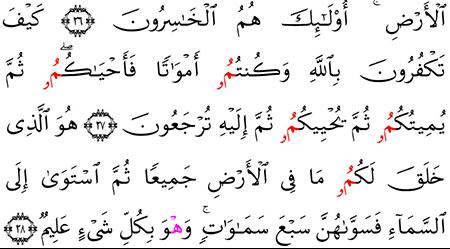 اَ۬لْأَرْضِ ۚ أُوْلَٰٓئِكَ هُمُ اُ۬لْخَٰسِرُونَ ٣٦ كَيْفَ
تَكْفُرُونَ بِاللَّهِ وَكُنتُمُۥ أَمْوَٰتًا فَأَحْيَٰكُمُۥ ۖ ثُمَّ
يُمِيتُكُمُۥ ثُمَّ يُحْيِيكُمُۥ ثُمَّ إِلَيْهِ تُرْجَعُونَ ٣٧ هُوَ اَلَّذِى
خَلَقَ لَكُمُۥ مَا فِى اِ۬لْأَرْضِ جَمِيعًا ثُمَّ اَسْتَوَىٰٓ إِلَى
اَ۬لسَّمَآءِ فَسَوَّىٰهُنَّ سَبْعَ سَمَٰوَٰتٍ ۚ وَهْوَ بِكُلِّ شَىْءٍ عَلِيمٌ ٣٨